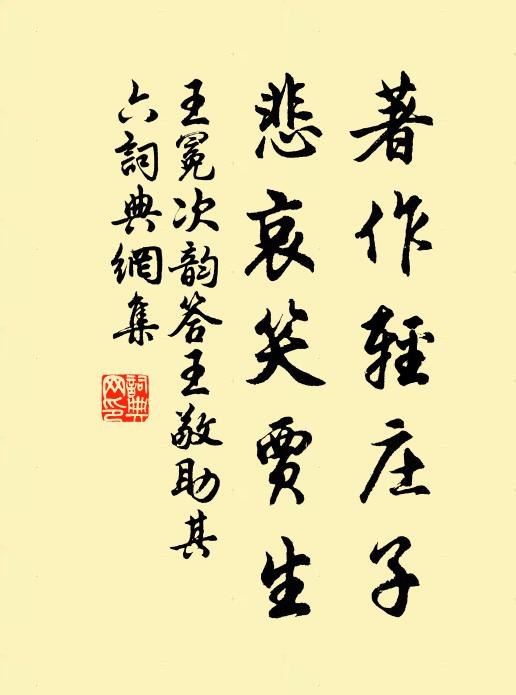 著作輕庄子
悲哀笑賈生
王冕次韵答王敬助其
六詞典網集
詞典網印